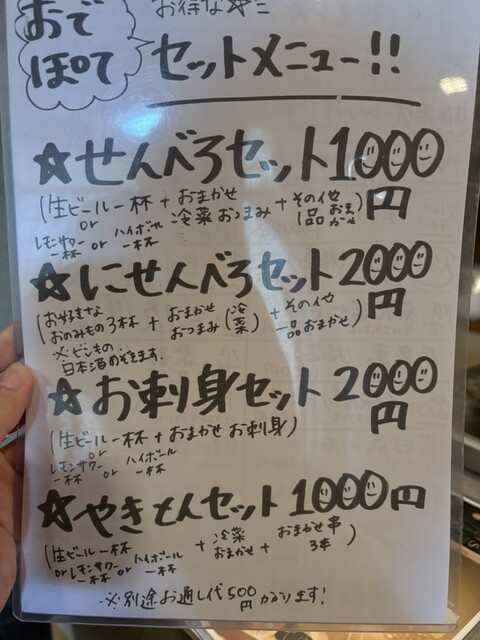 おで
ぽて
お得な☆ミ
セットメニュー!!
☆せんべろセット1000円
(生ビール一杯 + おまかせ + その他 おまかせ)
or 冷菜おつまみ 1品
レモンサワー 一杯 or ハイボール 一杯
☆にせんべろセット2000円
(お好きな + おまかせ (冷菜) + その他
おのみもの3杯 おつまみ 一品おまかせ)
※ビンもの・
日本酒のぞきます。
☆お刺身セット2000円
(生ビール一杯 + おまかせお刺身)
or
レモンサワー 一杯 or ハイボール 一杯
☆やきとんセット1000円
(生ビール一杯 + 冷菜おまかせ + おまかせ串3本)
or レモンサワー 一杯 or ハイボール 一杯
※別途お通し代500円かかります!